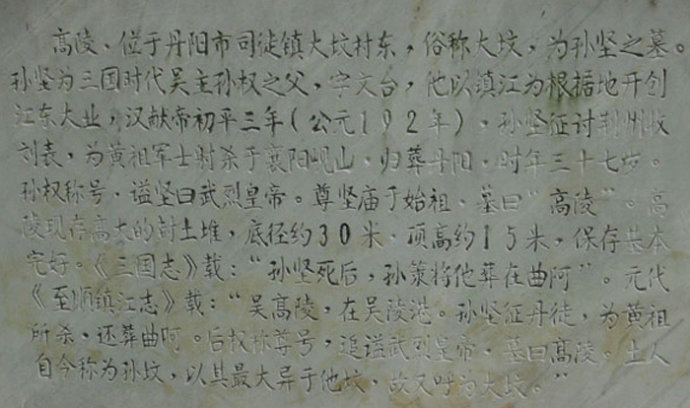 高陵，位于丹阳市司徒镇大坟村东，俗称大坟，为孙坚之墓。
孙坚为三国时代吴主孙权之父，字文台，他以镇江为根据地开创
江东大业，汉献帝初平三年（公元192年），孙坚征讨荆州牧
刘表，为黄祖军士射杀于襄阳岘山，归葬丹阳，时年三十七岁。
孙权称号，谥坚曰武烈皇帝。尊坚庙于始祖，墓曰“高陵”。高
陵现存高大的封土堆，底径约30米，顶高约15米，保存基本
完好。《三国志》载：“孙坚死后，孙策将他葬在曲阿”。元代
《至顺镇江志》载：“吴高陵，在吴陵港。孙坚征丹徒，为黄祖
所杀，还葬曲阿。后权称尊号，追谥武烈皇帝，墓曰高陵。土人
自今称为孙坟，以其最大异于他坟，故又呼为大坟。”